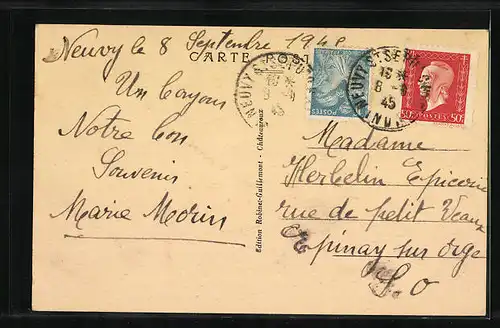 Neuvy le 8 Septembre 1945
CARTE POSTALE
Un Crayons
Notre bon
Souvenir
Marie Morin
Edition Robinet-Guillemont - Châteauroux
POSTES
NEUVY-St-SEPU
16 *
8 - 9
45
INDRE
50c POSTES 50c
Madame
Herbelin Epicerie
rue de petit Vaux
Epinay sur orge
S O